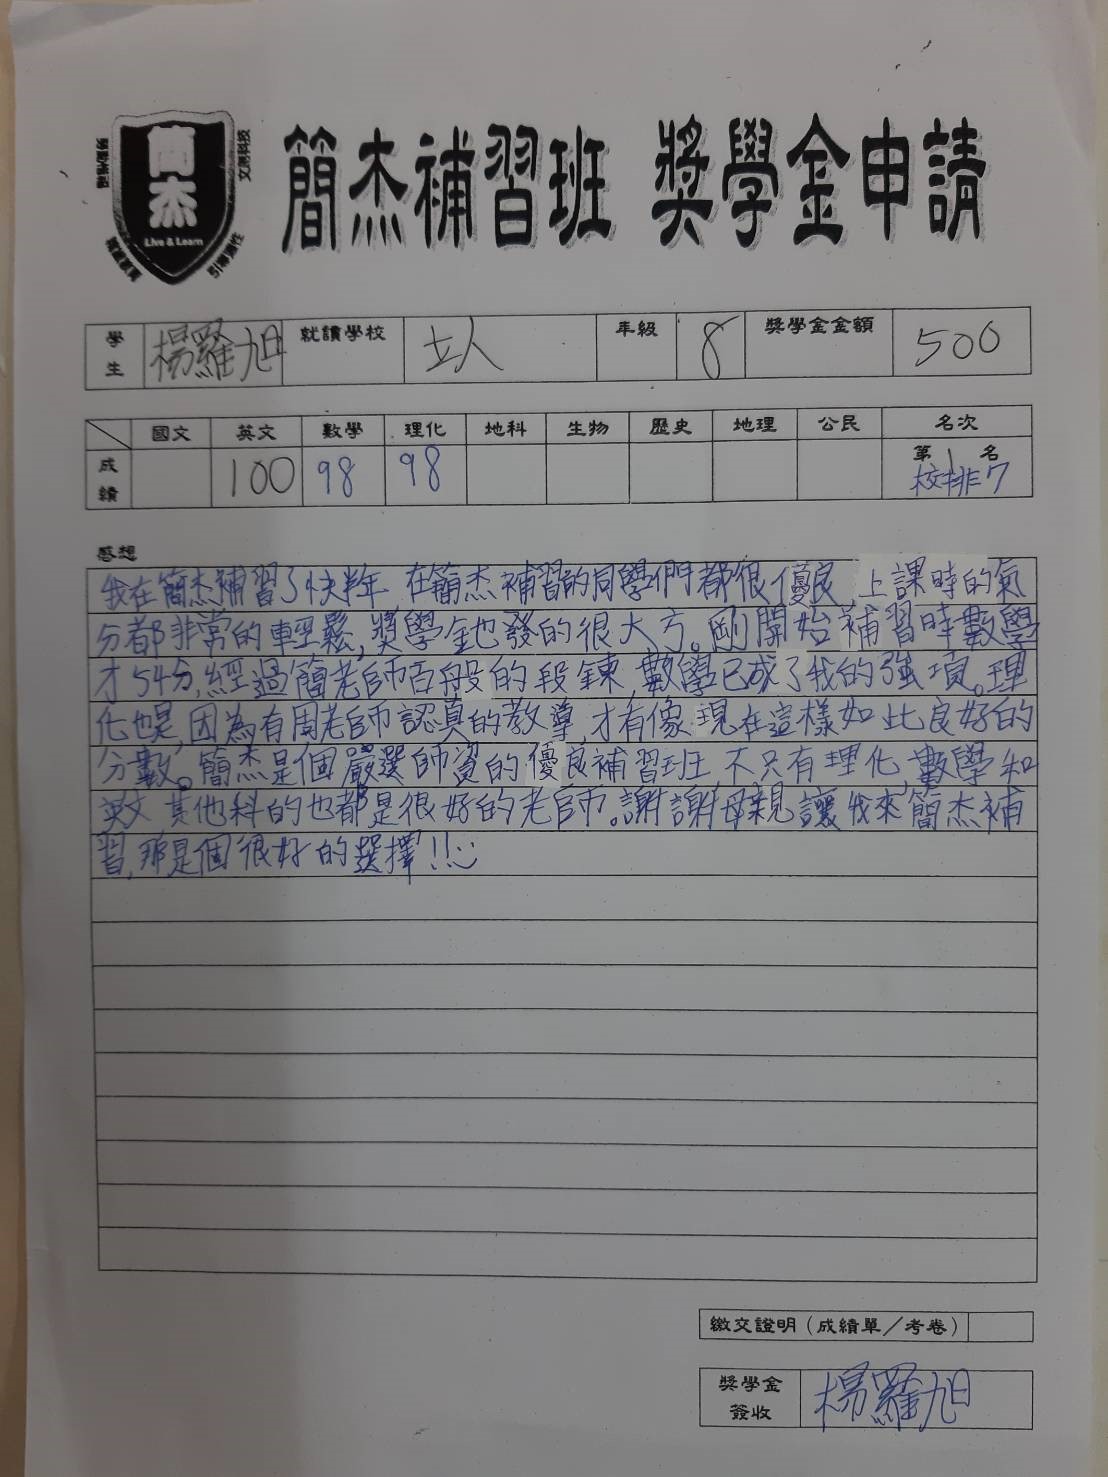 簡杰
Live & Learn
文憑科技
簡杰補習班 獎學金申請
學生 楊羅旭 就讀學校 立人 年級 8 獎學金金額 500
國文 英文 數學 理化 地科 生物 歷史 地理 公民 名次
成績 100 98 98 第1名
校排7
感想
我在簡杰補習了快半年,在簡杰補習的同學們都很優良,上課時的氣
分都非常的輕鬆,獎學金也發的很大方。剛開始補習時數學
才54分,經過簡老師百般的段鍊,數學已成了我的強項。理
化也是,因為有周老師認真的教導,才有像現在這樣如此良好的
分數。簡杰是個嚴選師資的優良補習班,不只有理化,數學和
英文 其他科的也都是很好的老師。謝謝母親讓我來簡杰補
習,那是個很好的選擇!!
繳交證明(成績單/考卷)
獎學金
簽收 楊羅旭